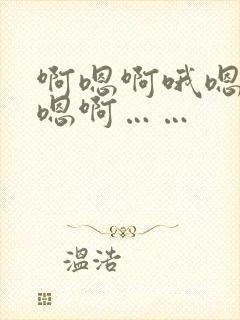 啊嗯啊哦嗯
嗯啊……
温浩